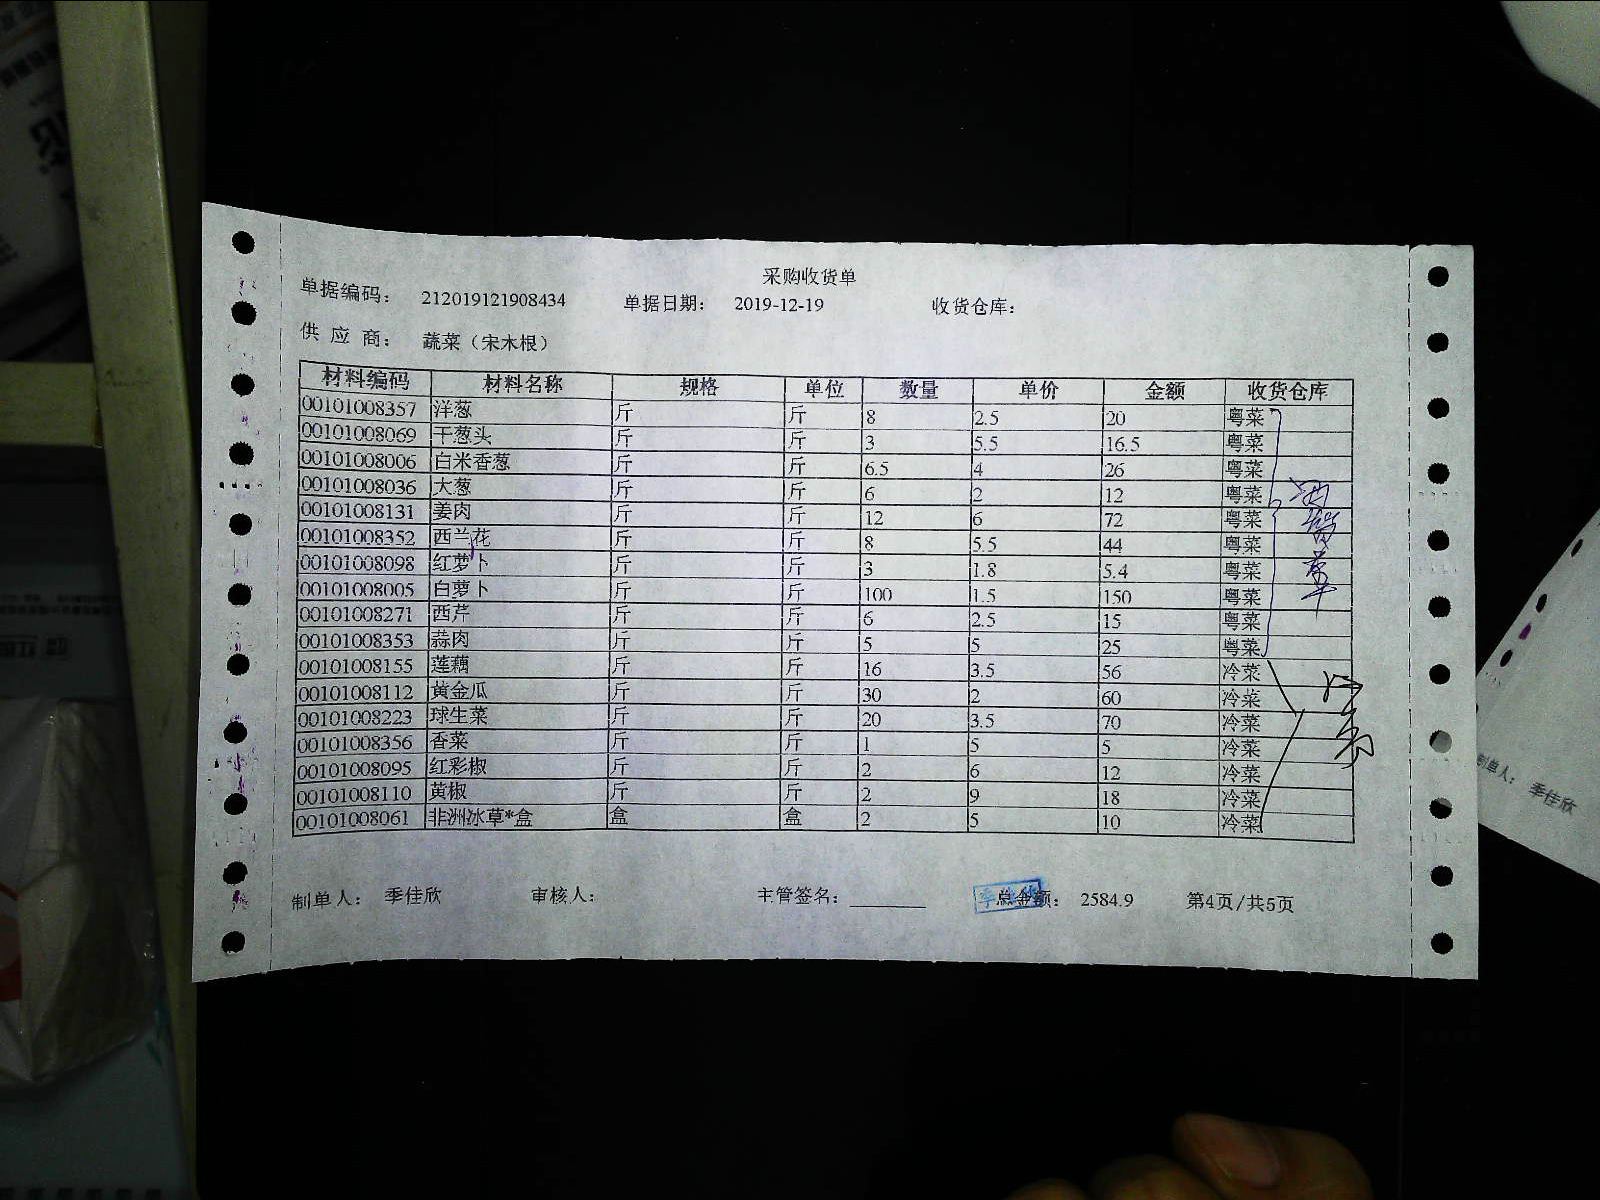 采购收货单
单据编码： 212019121908434 单据日期： 2019-12-19 收货仓库：
供 应 商： 蔬菜（宋木根）
材料编码 材料名称 规格 单位 数量 单价 金额 收货仓库
00101008357 洋葱 斤 斤 8 2.5 20 粤菜
00101008069 干葱头 斤 斤 3 5.5 16.5 粤菜
00101008006 白米香葱 斤 斤 6.5 4 26 粤菜
00101008036 大葱 斤 斤 6 2 12 粤菜
00101008131 姜肉 斤 斤 12 6 72 粤菜
00101008352 西兰花 斤 斤 8 5.5 44 粤菜
00101008098 红萝卜 斤 斤 3 1.8 5.4 粤菜
00101008005 白萝卜 斤 斤 100 1.5 150 粤菜
00101008271 西芹 斤 斤 6 2.5 15 粤菜
00101008353 蒜肉 斤 斤 5 5 25 粤菜
00101008155 莲藕 斤 斤 16 3.5 56 冷菜
00101008112 黄金瓜 斤 斤 30 2 60 冷菜
00101008223 球生菜 斤 斤 20 3.5 70 冷菜
00101008356 香菜 斤 斤 1 5 5 冷菜
00101008095 红彩椒 斤 斤 2 6 12 冷菜
00101008110 黄椒 斤 斤 2 9 18 冷菜
00101008061 非洲冰草*盒 盒 盒 2 5 10 冷菜
制单人： 季佳欣 审核人： 主管签名： 总金额： 2584.9 第4页/共5页
制单人： 季佳欣